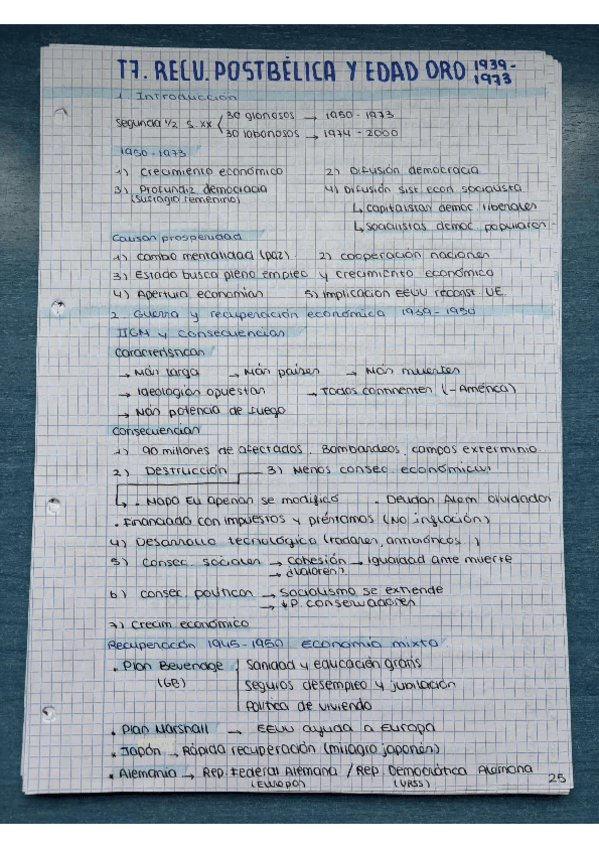 T7. RECU. POSTBÉLICA Y EDAD ORO 1939-1973
1. Introducción
Segunda 1/2 S. XX 30 gloriosos → 1950-1973
30 laboriosos → 1974-2000
1950-1973
1) Crecimiento económico 2) Difusión democracia
3) Profundiz. democracia (sufragio femenino) 4) Difusión sist. econ. socialista
↳ capitalistas democ. liberales
↳ socialistas democ. populares
Causas prosperidad
1) Cambio mentalidad (paz) 2) cooperación naciones
3) Estado busca pleno empleo y crecimiento económico
4) Apertura economías 5) Implicación EEUU reconst. UE
2. Guerra y recuperación económica 1939-1950
IIGM y consecuencias
Características
→ Más larga → Más países → Más muertes
→ Ideologías opuestas → Todos continentes (-América)
→ Más potencia de fuego
Consecuencias
1) 90 millones de afectados. Bombardeos, campos exterminio
2) Destrucción 3) Menos consec. económicas
↳ . Mapa EU apenas se modificó . Deudas Alem. olvidadas
. Financiado con impuestos y préstamos (No inflación)
4) Desarrollo tecnológico (radares, )
5) Consec. sociales → Cohesión → Igualdad ante muerte
→ ¿Valores?
6) consec. políticas → Socialismo se extiende
→ ↓P. conservadores
7) Crecim. económico
Recuperación 1945-1950 economía mixta
. Plan Beveridge (GB) Sanidad y educación gratis
Seguros desempleo y jubilación
Política de vivienda
. Plan Marshall → EEUU ayuda a Europa
. Japón → Rápida recuperación (milagro japonés)
. Alemania → Rep. Federal Alemana / Rep. Democrática Alemana
(Europa) (URSS)
25